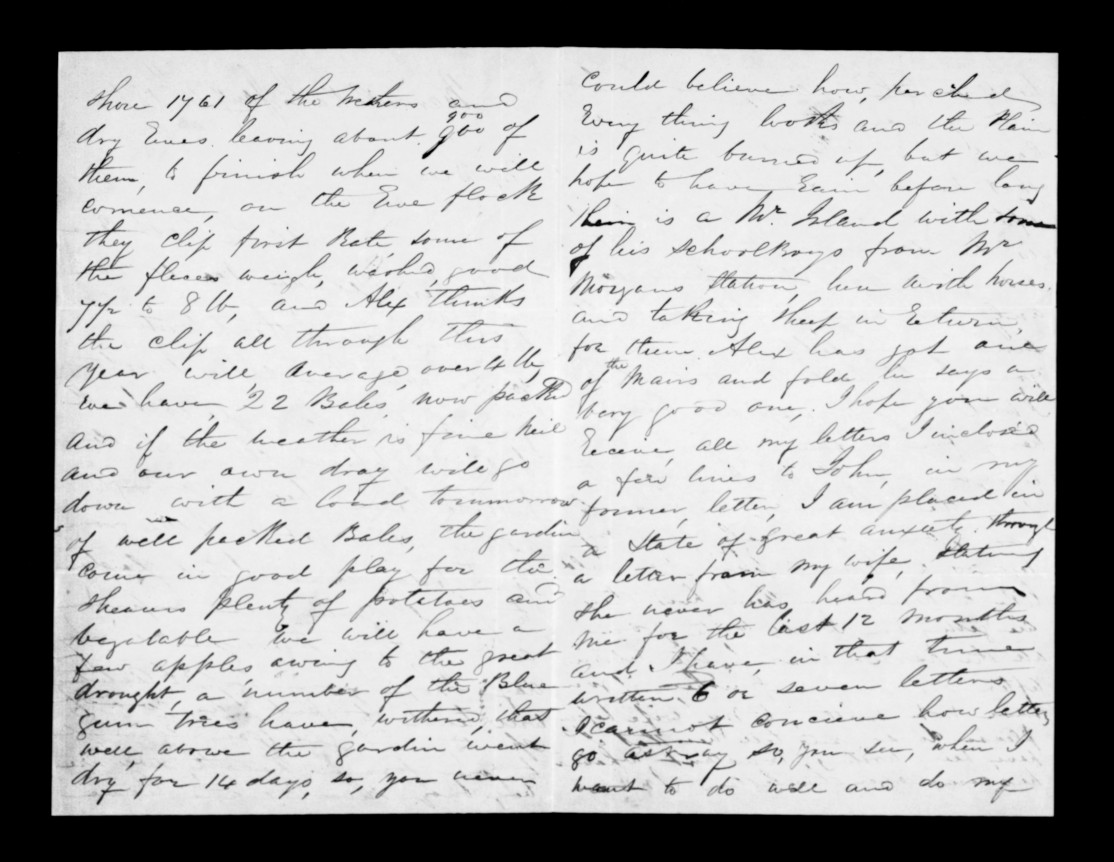 shore 1761 of the wethers and
dry Ewes leaving about 900 of
them, to finish when we will
comence, on the Ewe flock
they clip first Rate some of
the fleces weigh, washed, good
7½ to 8 lb, and Alex thinks
the clip all through this
year will, average, over 4 lb,
we have, 22 Bales, now packed
and if the weather is fine Neil
and our own dray will go
down with a load tommorrow
of well packed Bales, the gardin
comes in good play for the
shearers plenty of potatoes and
vegetable we will have a
few apples owing to the great
drought, a number of the Blue
gum trees have, withered, that
well above the gardin went
dry, for 14 days, so, you never
could believe how, parched
Every thing looks and the plain
is quite burned up, but we
hope to have Rain before long
their is a Mr. Island with some
of his schoolboys from Mr
Morgans station, here with horses
and taking sheep in Return,
for them. Alex has got one
of the Mairs and fold he says a
very good one, I hope you will
Receive, all my letters I inclosed
a few lines to John, in my
former, letter, I am placed in
a State of great anxiety through
a letter from my wife, stating
she never has, heard from
me for the last 12 months
and I have, in that time
written 6 or seven letters
I cannot concieve how letters
go astray so, you see, when I
want to do well and do my